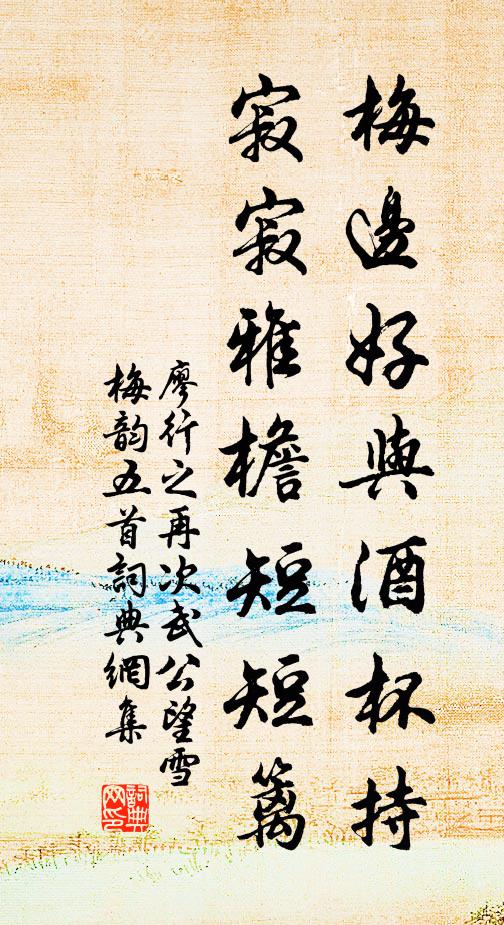 梅邊好與酒杯持
寂寂雅檐短短籬
廖行之再次武公望雪
梅韵五首詞典網集
詞典網印